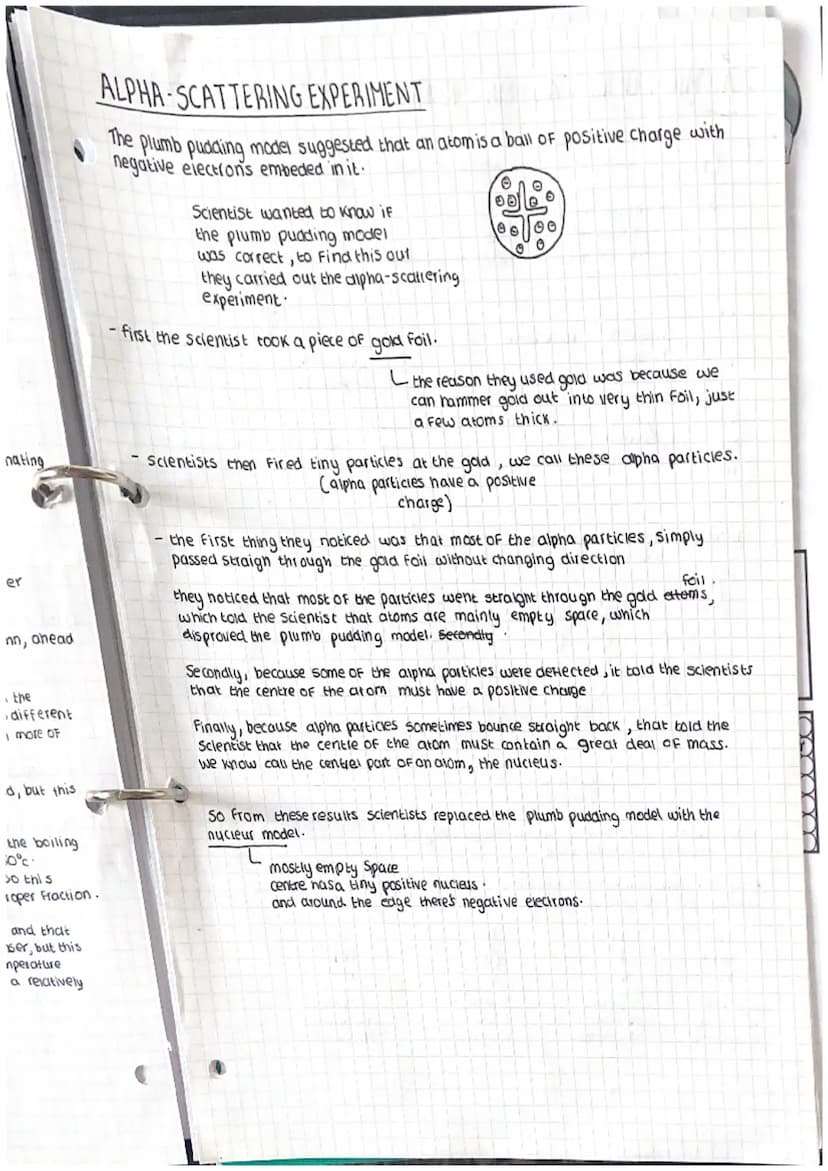 ALPHA-SCATTERING EXPERIMENT
The plumb pudding model suggested that an atom is a ball of positive charge with
negative electrons embeded in it.
Scientist wanted to know if
the plumb pudding model
was correct, to find this out
they carried out the alpha-scattering
experiment.
- first the scientist took a piece of gold foil.
the reason they used gold was because we
can hammer gold out into very thin foil, just
a few atoms thick.
- Scientists then fired tiny particles at the gold, we call these alpha particles.
(alpha particles have a positive
charge)
- the first thing they noticed was that most of the alpha particles, simply
passed straign through the gold foil without changing direction
foil.
they noticed that most of the particles went straight through the gold attoms,
which told the scientist that atoms are mainly empty space, which
disproved the plumb pudding model. Secondly
Secondly, because some of the alpha particles were deflected, it told the scientists
that the centre of the atom must have a positive charge
Finally, because alpha particles sometimes bounce straight back, that told the
scientist that the centre of the atom must contain a great deal of mass.
we know call the centrel part of an atom, the nucleus.
So from these results scientists replaced the plumb pudding model with the
nucleus model.
mostly empty space
centre has a tiny positive nucleus.
and around the edge there's negative electrons.
nating
er
nn, ahead
the
different
more of
d, but this
the boiling
0°c.
so this
roper fraction.
and that
ser, but this
nperature
a relatively